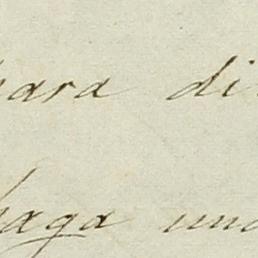 para di
haga una